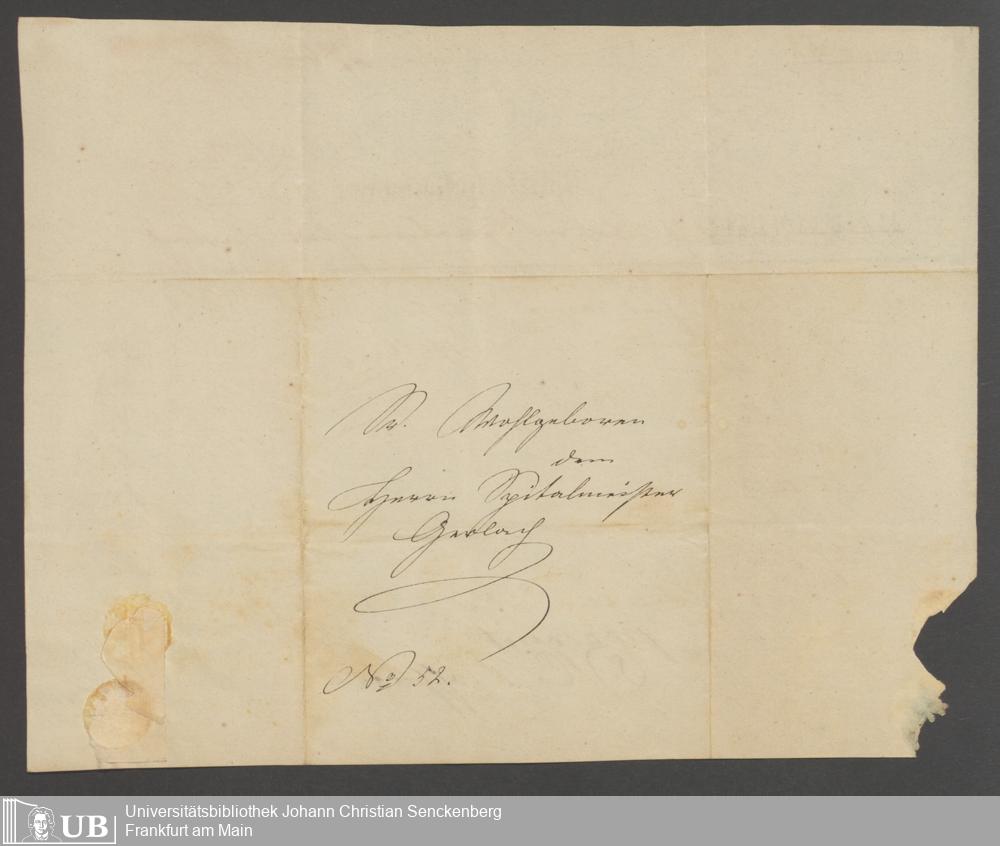 Sr. Wohlgeboren
dem
Herrn Spitalmeister
Gerlach
No 52.
Universitätsbibliothek Johann Christian Senckenberg
Frankfurt am Main
UB